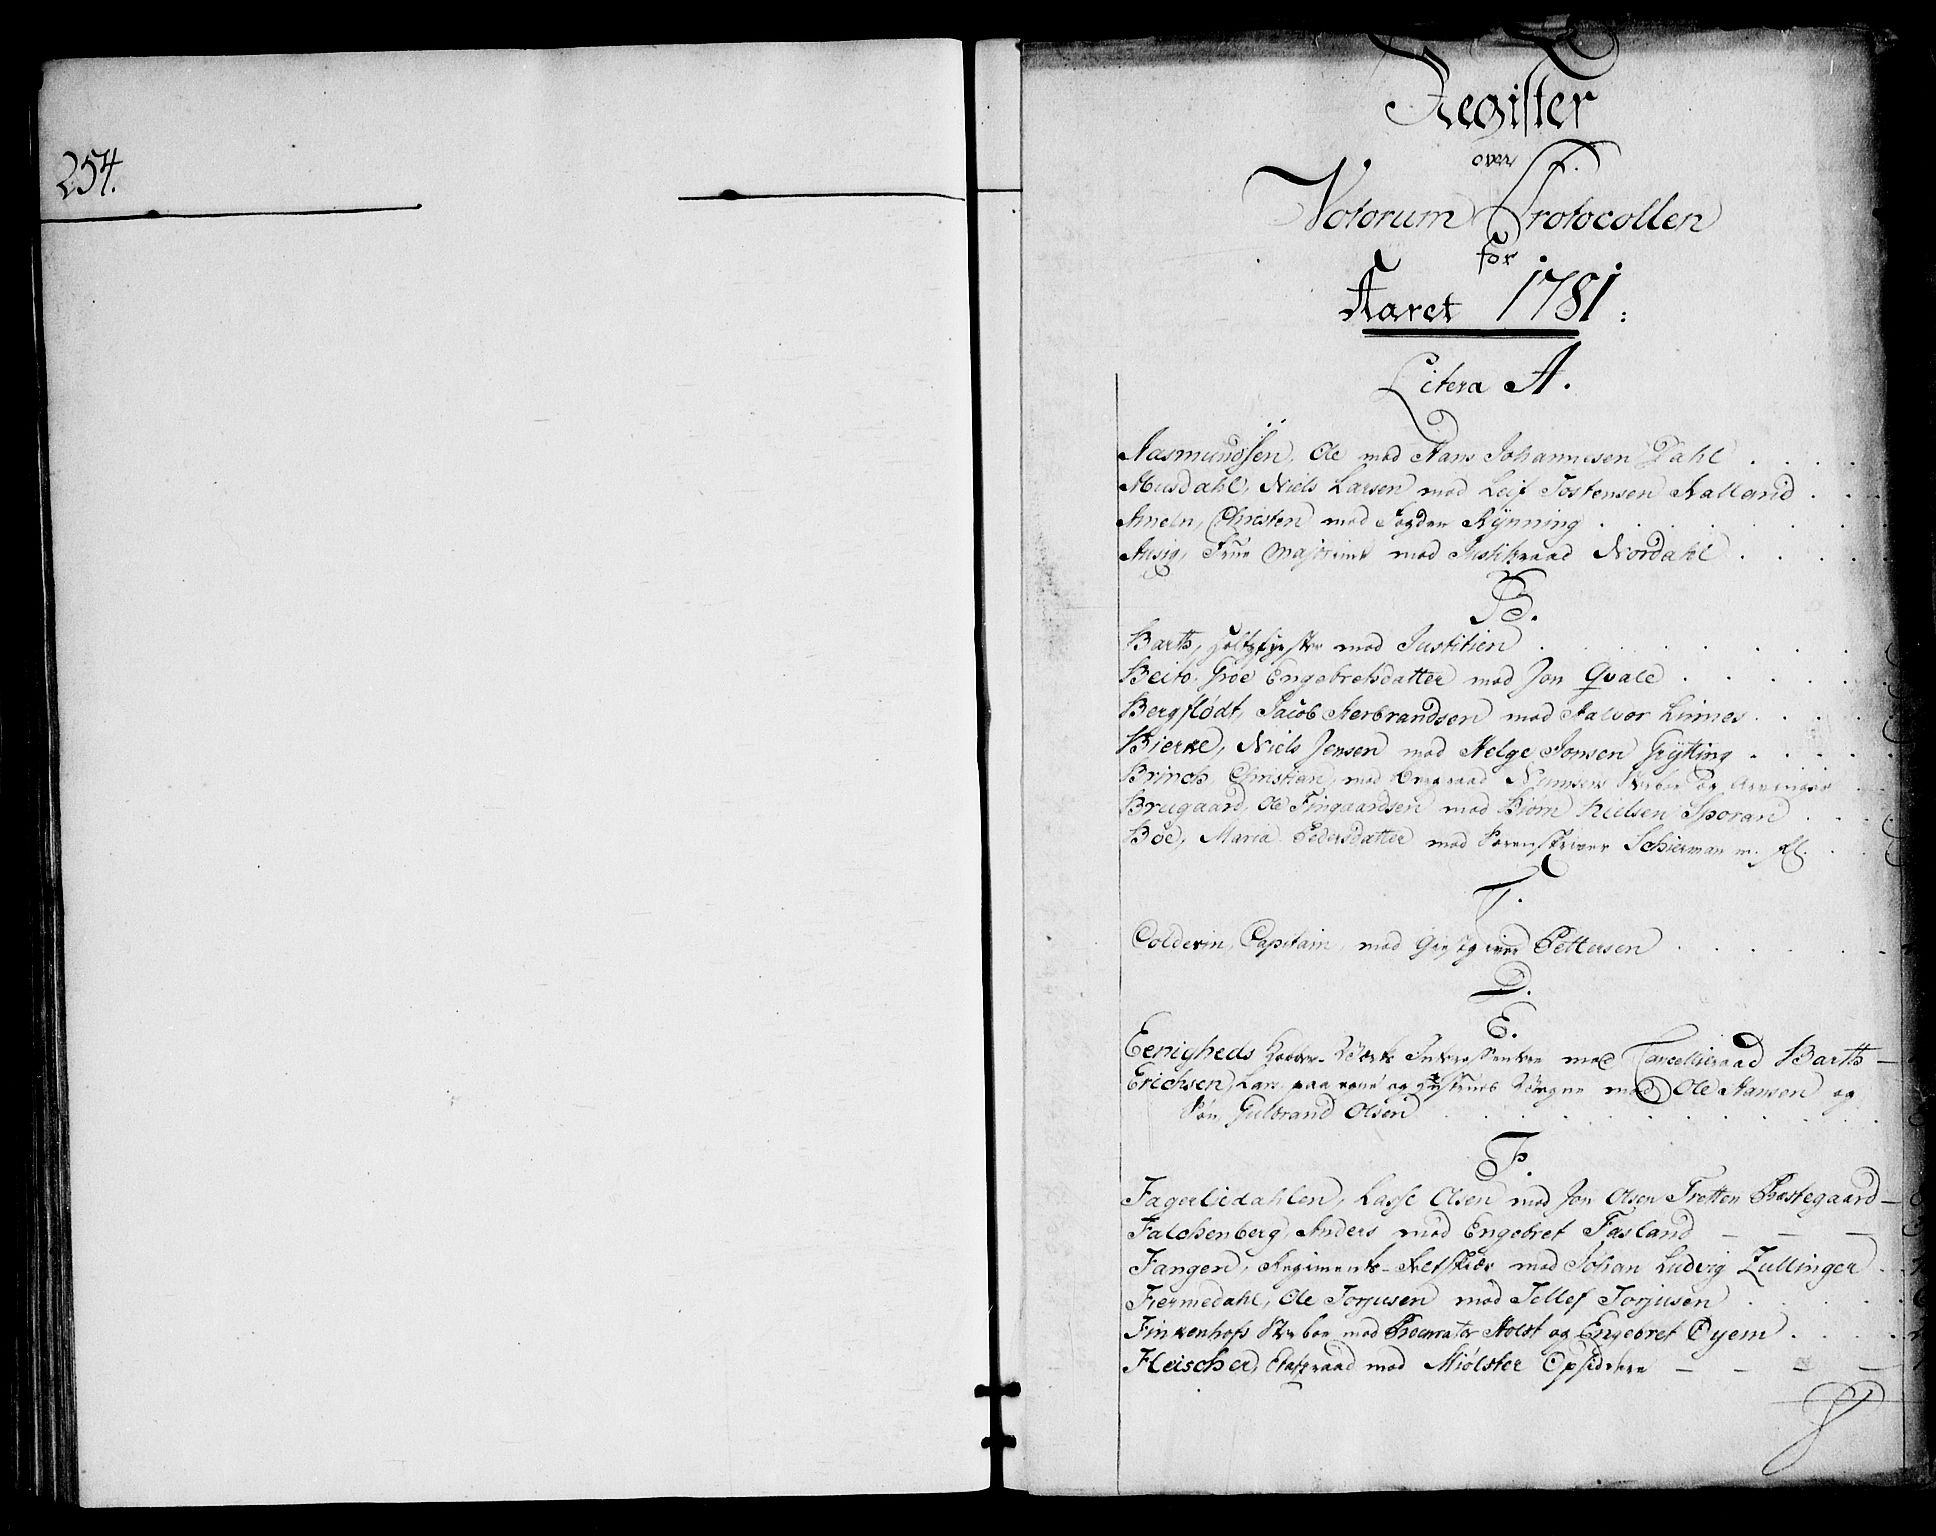 254.
Register
over
Votorum Protocollen
for
Aaret 1781:
Litera A.
Aasmundsen, Ole mod Hans Johannesen Dahl
Ausdahl, Niels Larsen mod Leif Tostensen Halland
Ameln, Christen mod Fogden Rynning
Ausig, Frue Majorinne mod Justitsraad Nordahl
B.
Barth, Holtzførster mod Justitien
Beito, Groe Engebretsdatter mod Jon Qvale
Bergflødt, Jacob Herbrandsen mod Halvor Linnes
Bierke, Niels Jensen mod Helge Jonsen Grytting
Brinch, Christian, mod Enegraad Numsens Sterboe og Arvinger
Brugaard, Ole Fingaardsen mod Biørn Nielsen Sporan
Bøe, Maria Pedersdatter mod Sorenskriver Schierman m. fl.
C.
Colderin, Capitain, mod Giestgiver Pettersen
D.
E.
Eenigheds Kobber-Værks Interessentere mod Cancellieraad Barth
Erichsen, Lars paa egne og Hustrues Vegne mod Ole Hansen og
Søn Gulbrand Olsen
F.
Fagerliedahlen, Lasse Olsen mod Jon Olsen Tretten Præstegaard
Falchenberg, Anders mod Engebret Fasland
Fangen, Regiments-Feltskiær mod Johan Ludvig Züllinger
Fiermedahl, Ole Torjusen mod Tellef Torjusen
Finkenhofs Sterboe mod Procurator Holst og Engebret Øyem
Fleischer, Etatsraad mod Miølster Opsiddere